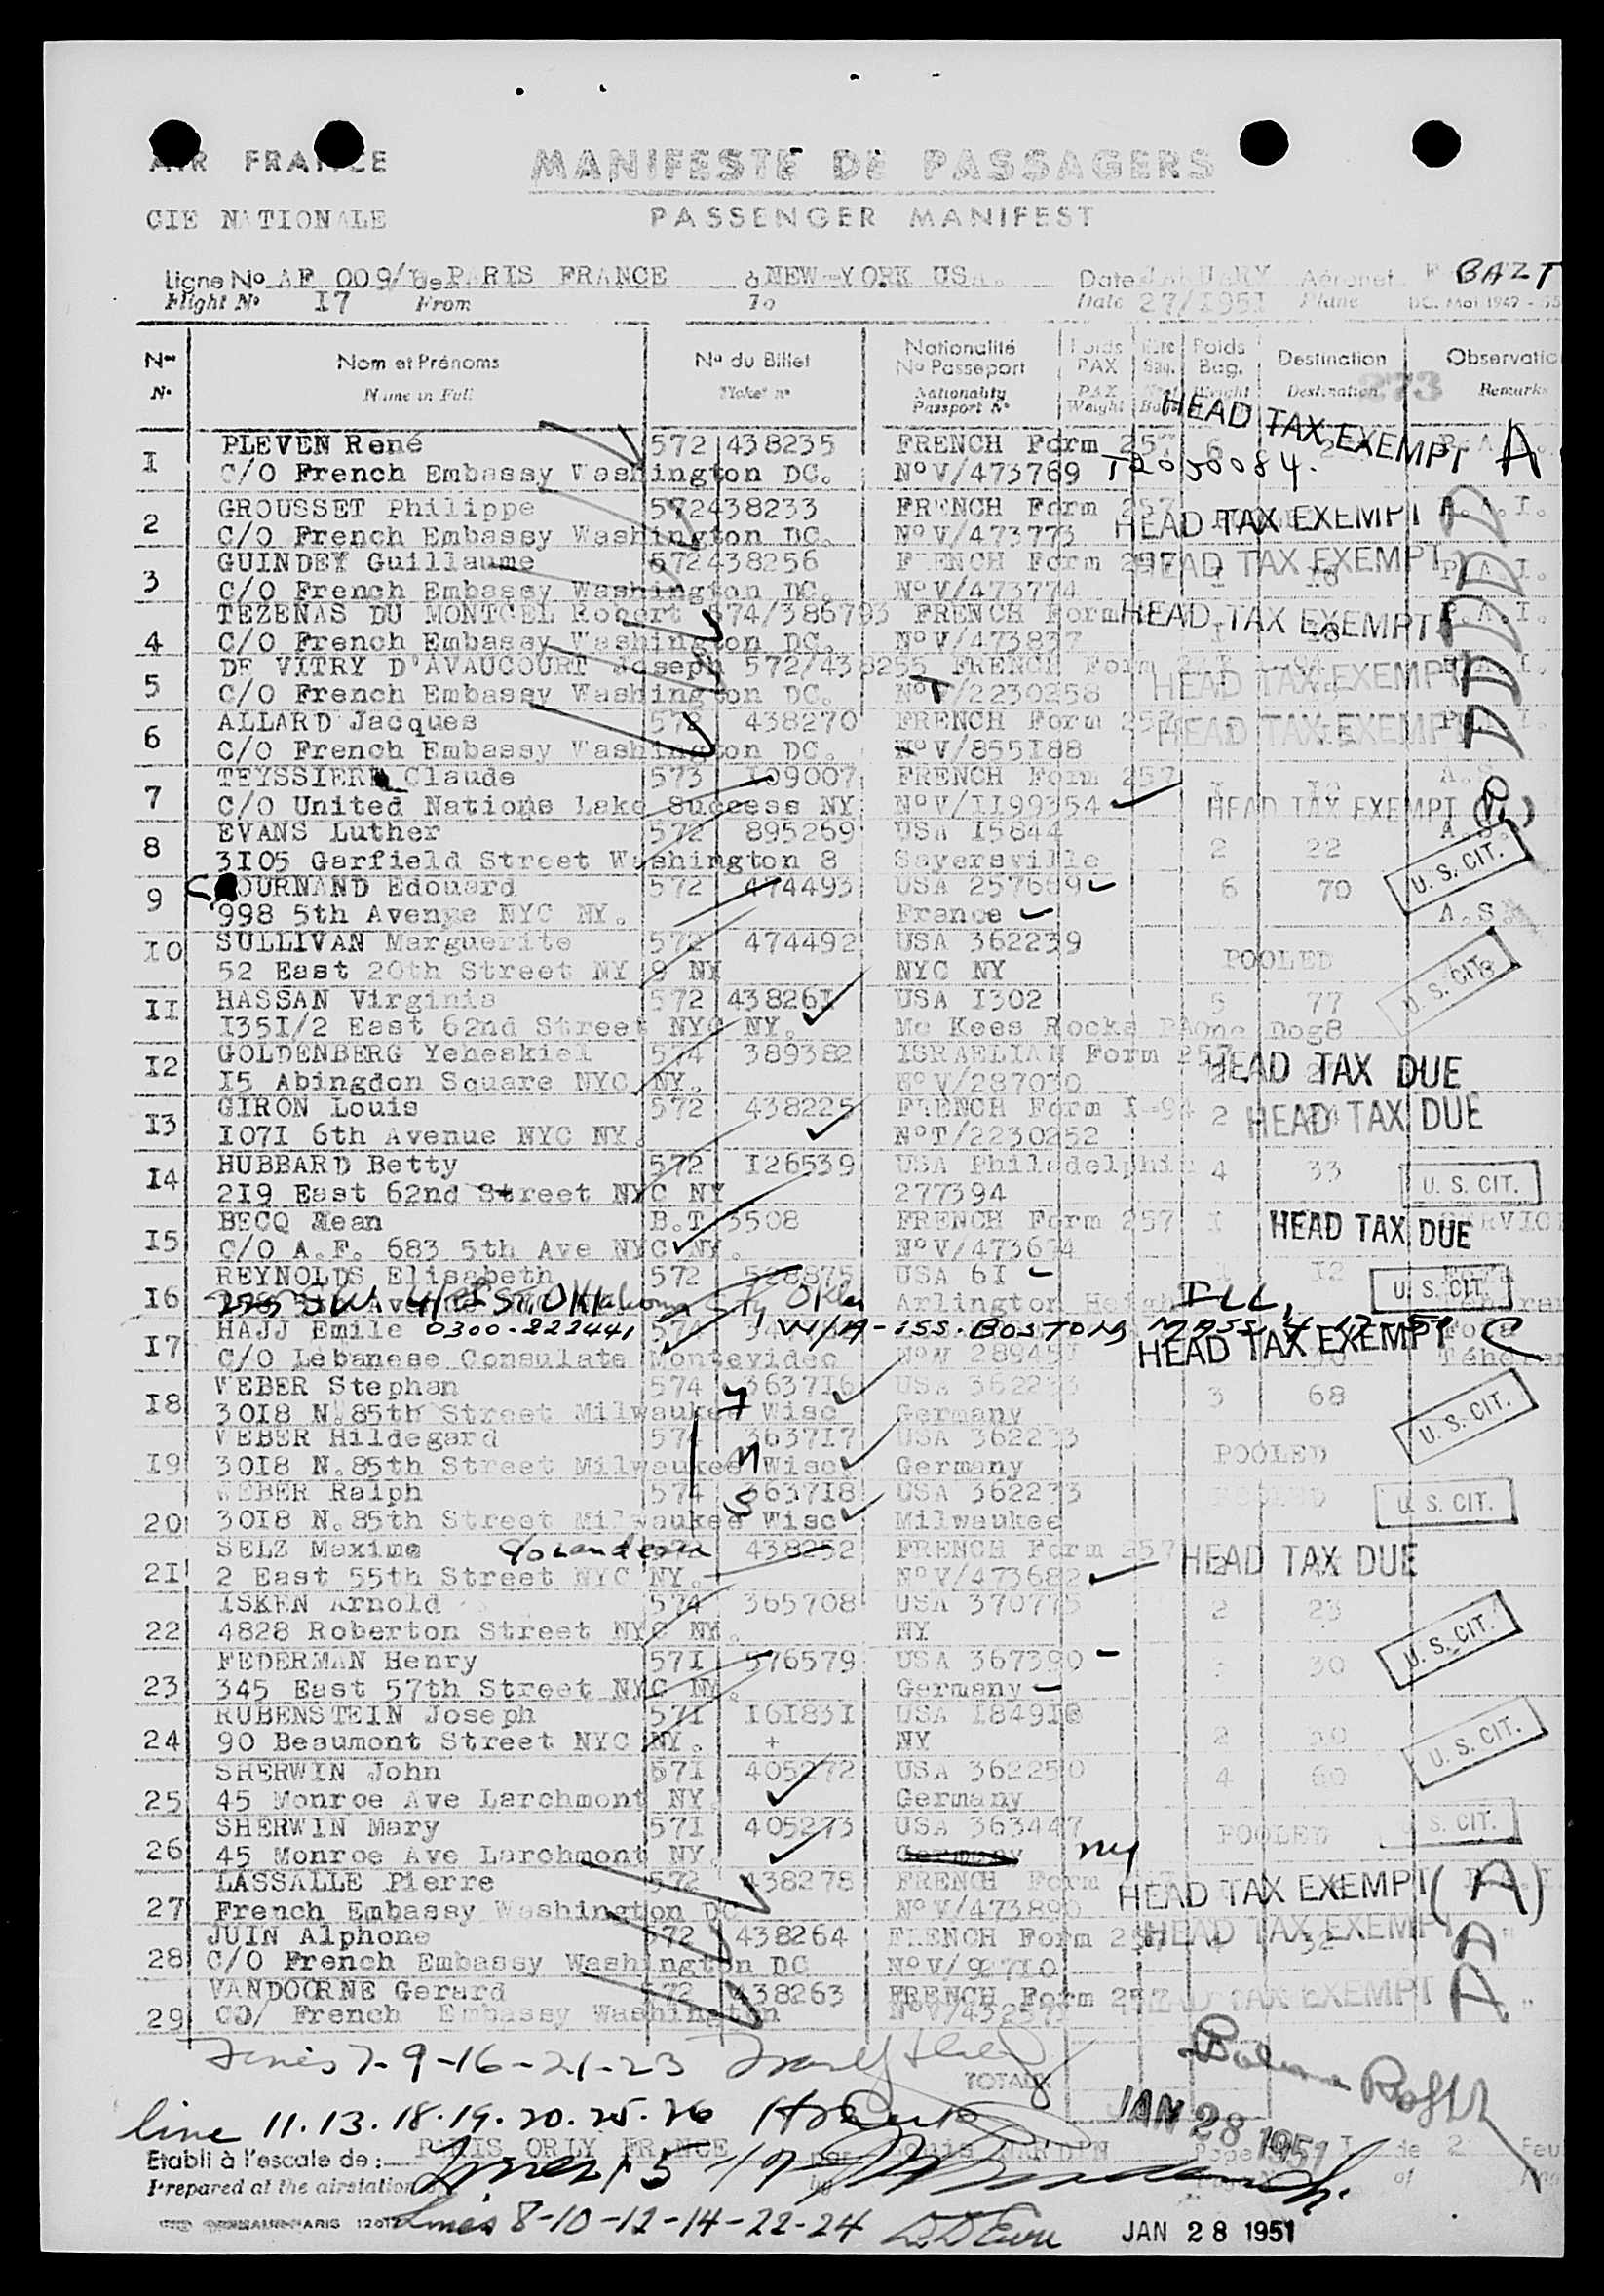 AIR FRANCE
MANIFESTE DE PASSAGERS
CIE NATIONALE
PASSENGER MANIFEST
Ligne No AF 009/ de PARIS FRANCE à NEW-YORK USA. Date JANUARY Aéronef F BAZT
Flight No 17 From To Date 27/1951 Plane DC. Mai 1947
Nos Nom et Prénoms No du Billet Nationalité No Passeport Poids PAX Nbre Bag. Poids Bag. Destination Observatio
N. Name in Full Ticket no Nationality Passport No PAX Weight Weight Destination Remarks
273
HEAD TAX EXEMPT
PLEVEN René 572 438235 FRENCH Form 257 6
1 C/O French Embassy Washington DC. No V/473769 T2030084. A
GROUSSET Philippe 572438233 FRENCH Form 257 P.A.I.
2 C/O French Embassy Washington DC. No V/473773 HEAD TAX EXEMPT
GUINDEY Guillaume 572438256 FRENCH Form 257 HEAD TAX EXEMPT P.A.I.
3 C/O French Embassy Washington DC. No V/473774
TEZENAS DU MONTCEL Robert 574/386793 FRENCH Form HEAD TAX EXEMPT P.A.I.
4 C/O French Embassy Washington DC. No V/473837
DE VITRY D'AVAUCOURT Joseph 572/438255 FRENCH Form
5 C/O French Embassy Washington DC. No T/2230258 HEAD TAX EXEMPT
ALLARD Jacques 572 438270 FRENCH Form 257 HEAD TAX EXEMPT
6 C/O French Embassy Washington DC. No V/855188
TEYSSIER Claude 573 109007 FRENCH Form 257 1 10 A.S.
7 C/O United Nations Lake Success NY No V/1199354 HEAD TAX EXEMPT
EVANS Luther 572 895269 USA 15844 A.S.
8 3105 Garfield Street Washington 8 Sayersville 2 22 U. S. CIT.
9 COURNAND Edouard 572 474493 USA 257689 6 70
998 5th Avenue NYC NY. France A.S.
10 SULLIVAN Marguerite 572 474492 USA 362239 POOLED
52 East 20th Street NY 9 NY NYC NY U. S. CIT.
11 HASSAN Virginia 572 438261 USA 1302 5 77
1351/2 East 62nd Street NYC NY. Mc Kees Rocks PA One Dog8
12 GOLDENBERG Yeheskiel 574 389382 ISRAELIAN Form 257 HEAD TAX DUE
15 Abingdon Square NYC NY. No V/287030
13 GIRON Louis 572 438225 FRENCH Form I-94 2 HEAD TAX DUE
1071 6th Avenue NYC NY. No T/2230252
14 HUBBARD Betty 572 126539 USA Philadelphia 4 33
219 East 62nd Street NYC NY 277394 U. S. CIT.
15 BECQ Jean B.T 3508 FRENCH Form 257 1 HEAD TAX DUE
C/O A.F. 683 5th Ave NYC NY. No V/473674
REYNOLDS Elisabeth 572 528875 USA 61 12 U. S. CIT.
16 225 SW 41st ST. Oklahoma City Okla Arlington Heigh ILL,
17 HAJJ Emile 0300-222441 574 V/A-iss. BOSTON, MASS. HEAD TAX EXEMPT C
C/O Lebanese Consulate Montevideo No V 289451 Téhéran
WEBER Stephan 574 363716 USA 362233
18 3018 N.85th Street Milwaukee 7 Wisc Germany 3 68 U. S. CIT.
WEBER Hildegard 574 363717 USA 362233 POOLED
19 3018 N.85th Street Milwaukee Wisc. Germany
WEBER Ralph 574 363718 USA 362233 POOLED U. S. CIT.
20 3018 N.85th Street Milwaukee Wisc Milwaukee
SELZ Maxime 438252 FRENCH Form 257 HEAD TAX DUE
21 2 East 55th Street NYC NY. No V/473682
ISKEN Arnold 574 365708 USA 370775 2 23
22 4828 Roberton Street NYC NY. NY U. S. CIT.
FEDERMAN Henry 571 376579 USA 367390 30
23 345 East 57th Street NYC NY. Germany
RUBENSTEIN Joseph 571 161831 USA 18491
24 90 Beaumont Street NYC NY. + NY 2 30 U. S. CIT.
SHERWIN John 571 405272 USA 362250 4 60
25 45 Monroe Ave Larchmont NY. Germany
SHERWIN Mary 571 405273 USA 363447 POOLED U. S. CIT.
26 45 Monroe Ave Larchmont NY. Germany ny
LASSALLE Pierre 572 438278 FRENCH Form HEAD TAX EXEMPT (A)
27 French Embassy Washington DC No V/473890
JUIN Alphone 572 438264 FRENCH Form 257 HEAD TAX EXEMPT
28 C/O French Embassy Washington DC No V/
VANDOORNE Gerard 572 438263 FRENCH Form 257 HEAD TAX EXEMPT A
29 CO/ French Embassy Washington
Lines 7-9-16-21-23
TOTAUX
line 11.13.18.19.20.25.26
JAN 28 1951
Etabli à l'escale de : PARIS ORLY FRANCE par Louis Page 1 de 2 Feu
Prepared at the airstation by of
Lines 8-10-12-14-22-24
JAN 28 1951